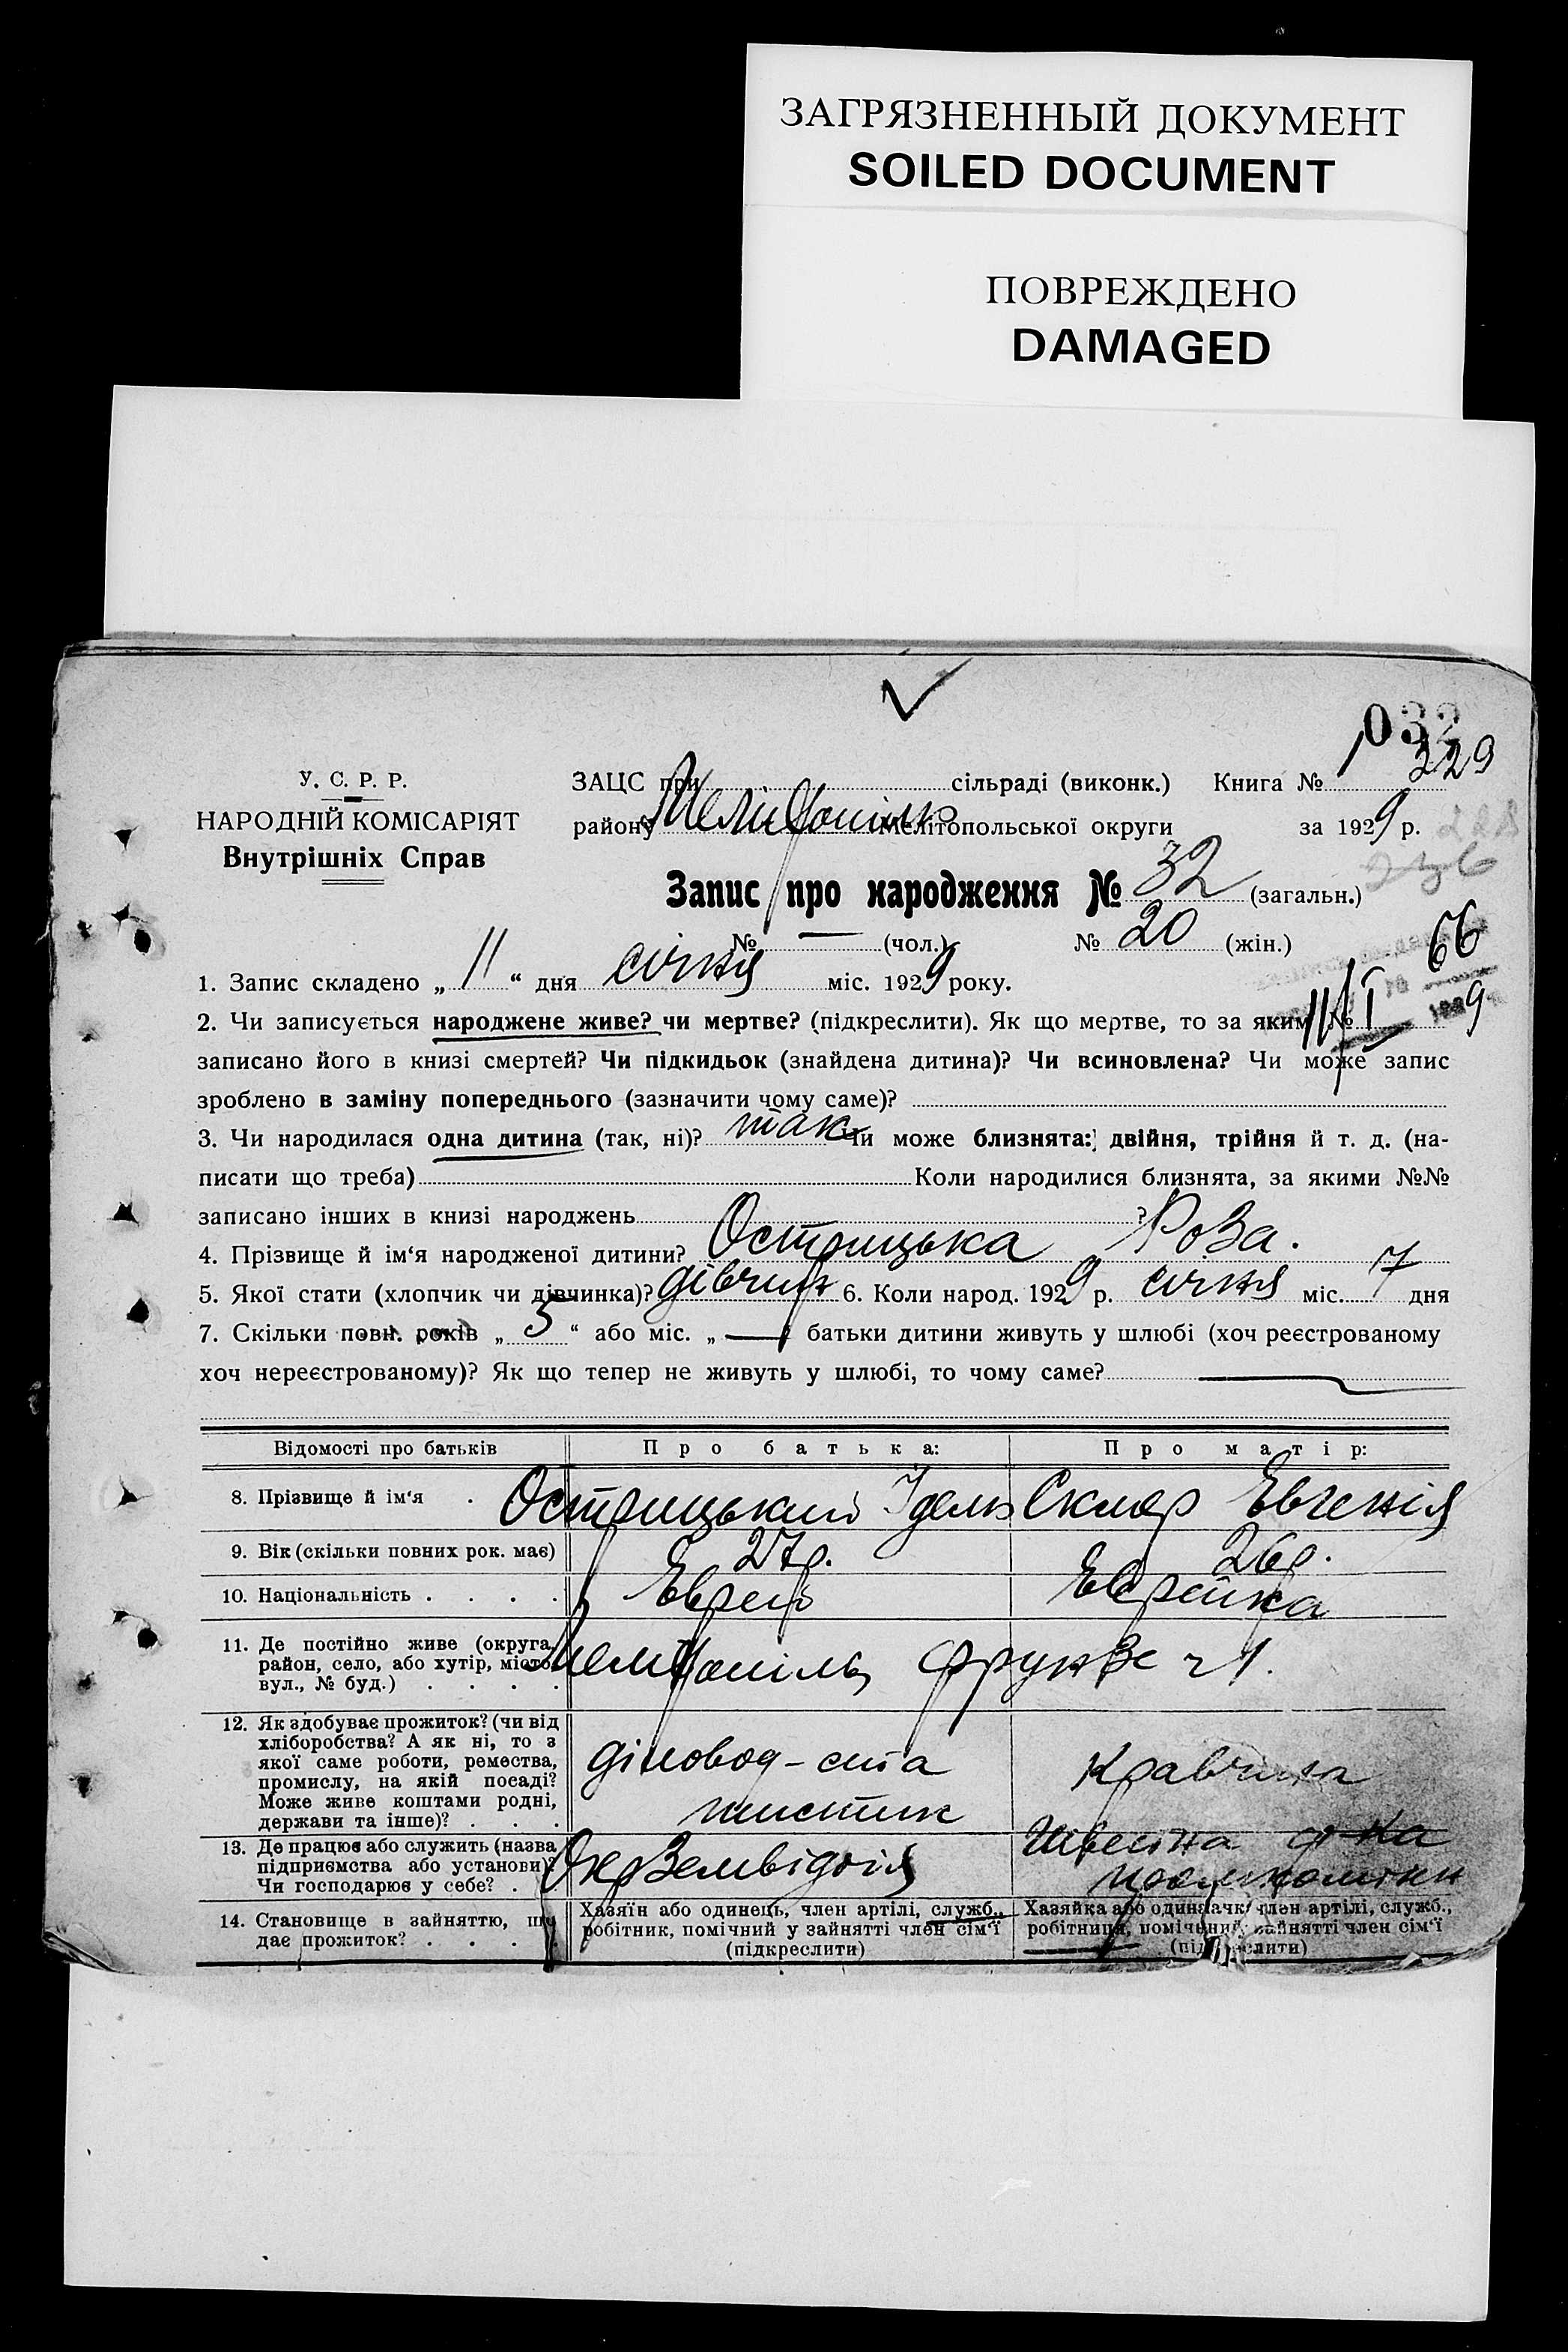 ЗАГРЯЗНЕННЫЙ ДОКУМЕНТ
SOILED DOCUMENT
ПОВРЕЖДЕНО
DAMAGED
032
329
У. С. Р. Р.
НАРОДНІЙ КОМІСАРІЯТ
Внутрішніх Справ
ЗАЦС при сільраді (виконк.) Книга №
району Мелітопільск Мелітопольської округи за 1929 р.
Запис про народження № 32 (загальн.)
№ — (чол.) № 20 (жін.)
66
1. Запис складено „ 11 “ дня січня міс. 1929 року.
11/I 9
2. Чи записується народжене живе? чи мертве? (підкреслити). Як що мертве, то за яким №
записано його в книзі смертей? Чи підкидьок (знайдена дитина)? Чи всиновлена? Чи може запис
зроблено в заміну попереднього (зазначити чому саме)?
3. Чи народилася одна дитина (так, ні)? так Чи може близнята: двійня, трійня й т. д. (на-
писати що треба) Коли народилися близнята, за якими №№
записано інших в книзі народжень ?
4. Прізвище й ім‘я народженої дитини? Острицька Роза.
5. Якої стати (хлопчик чи дівчинка)? дівчин 6. Коли народ. 1929 р. січня міс. 7 дня
7. Скільки повн. років „ 5 “ або міс. „ — “ батьки дитини живуть у шлюбі (хоч реєстрованому
хоч нереєстрованому)? Як що тепер не живуть у шлюбі, то чому саме? —
Відомості про батьків Про батька: Про матір:
8. Прізвище й ім‘я . Острицький Ідель Скляр Евгенія
9. Вік (скільки повних рок. має) 27р. 26р.
10. Національність . . . . Еврей Еврейка
11. Де постійно живе (округа,
район, село, або хутір, місто,
вул., № буд.) . . . . Мелітопіль, Фрунзе 21.
12. Як здобуває прожиток? (чи від
хліборобства? А як ні, то з
якої саме роботи, ремества,
промислу, на якій посаді?
Може живе коштами родні,
держави та інше)? . . .
діловод-ста
тистик
Кравчиха
13. Де працює або служить (назва
підприємства або установи)?
Чи господарює у себе? .
Окрземвідділ
Швейна ф-ка
14. Становище в зайняттю, що
дає прожиток? . . . .
Хазяїн або одинець, член артілі, служб.,
робітник, помічний у зайнятті член сім‘ї
(підкреслити)
Хазяйка або одиначк, член артілі, служб.,
робітниця, помічений, зайнятті член сім‘ї
(підкреслити)